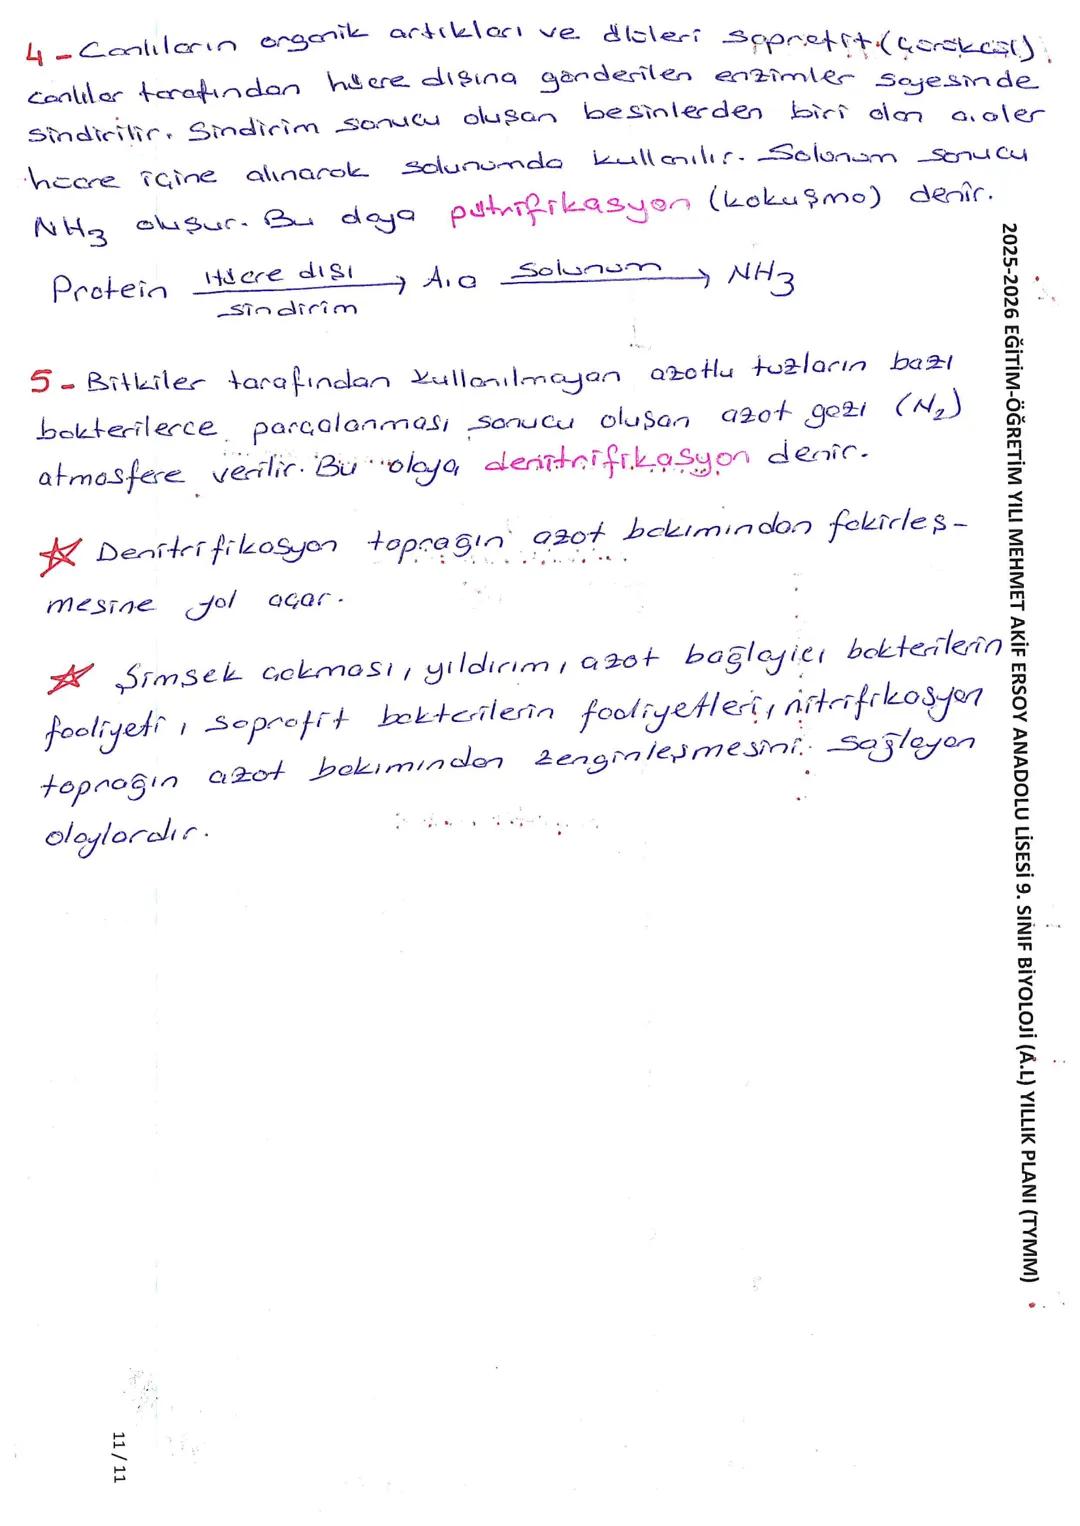 4-Canlıların organik artıkları ve ölüleri saprofit (çürükçül)
canlılar tarafından hücre dışına gönderilen enzimler sayesinde
sindirilir. Sindirim sonucu oluşan besinlerden biri olan a.aler
hücre içine alınarak solunumda kullanılır. Solunum sonucu
NH3 oluşur. Bu olaya pütrifikasyon (kokuşma) denir.
Protein Hücre dışı sindirim → A.a Solunum → NH3
5-Bitkiler tarafından kullanılmayan azotlu tuzların bazı
bakterilerce parçalanması sonucu oluşan azot gazı (N2)
atmosfere verilir. Bu olaya denitrifikasyon denir.
☆ Denitrifikasyon toprağın azot bakımından fakirleş-
mesine yol açar.
☆ Şimşek çakması, yıldırım, azot bağlayıcı bakterilerin
faaliyeti, saprofit bakterilerin faaliyetleri, nitrifikasyon
toprağın azot bakımından zenginleşmesini sağlayan
olaylardır.
2025-2026 EĞİTİM-ÖĞRETİM YILI MEHMET AKİF ERSOY ANADOLU LİSESİ 9. SINIF BİYOLOJİ (A.L) YILLIK PLANI (TYMM)
11 / 11